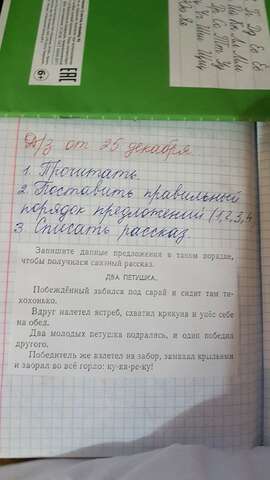 6+
ЕАС
Д/з от 25 декабря
1. Прочитать.
2. Поставить правильный
порядок предложений (1,2,3,4
3. Списать рассказ
Запишите данные предложения в таком порядке,
чтобы получился связный рассказ.
ДВА ПЕТУШКА.
Побеждённый забился под сарай и сидит там ти-
хохонько.
Вдруг налетел ястреб, схватил крикуна и унёс себе
на обед.
Два молодых петушка подрались, и один победил
другого.
Победитель же взлетел на забор, замахал крыльями
и заорал во всё горло: ку-ка-ре-ку!